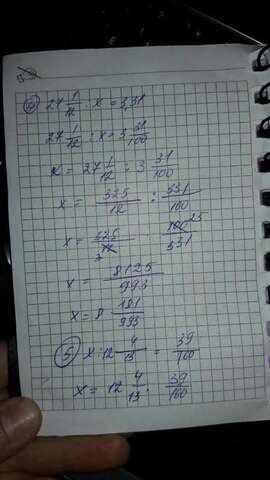 ④ 27 1/12 : x = 3,31
27 1/12 : x = 3 31/100
x = 27 1/12 : 3 31/100
x = 325/12 : 331/100
x = 325/12 3 · 100 25/331
x = 8125/993
x = 8 181/993
⑤ x : 12 4/13 = 39/100
x = 12 4/13 · 39/100